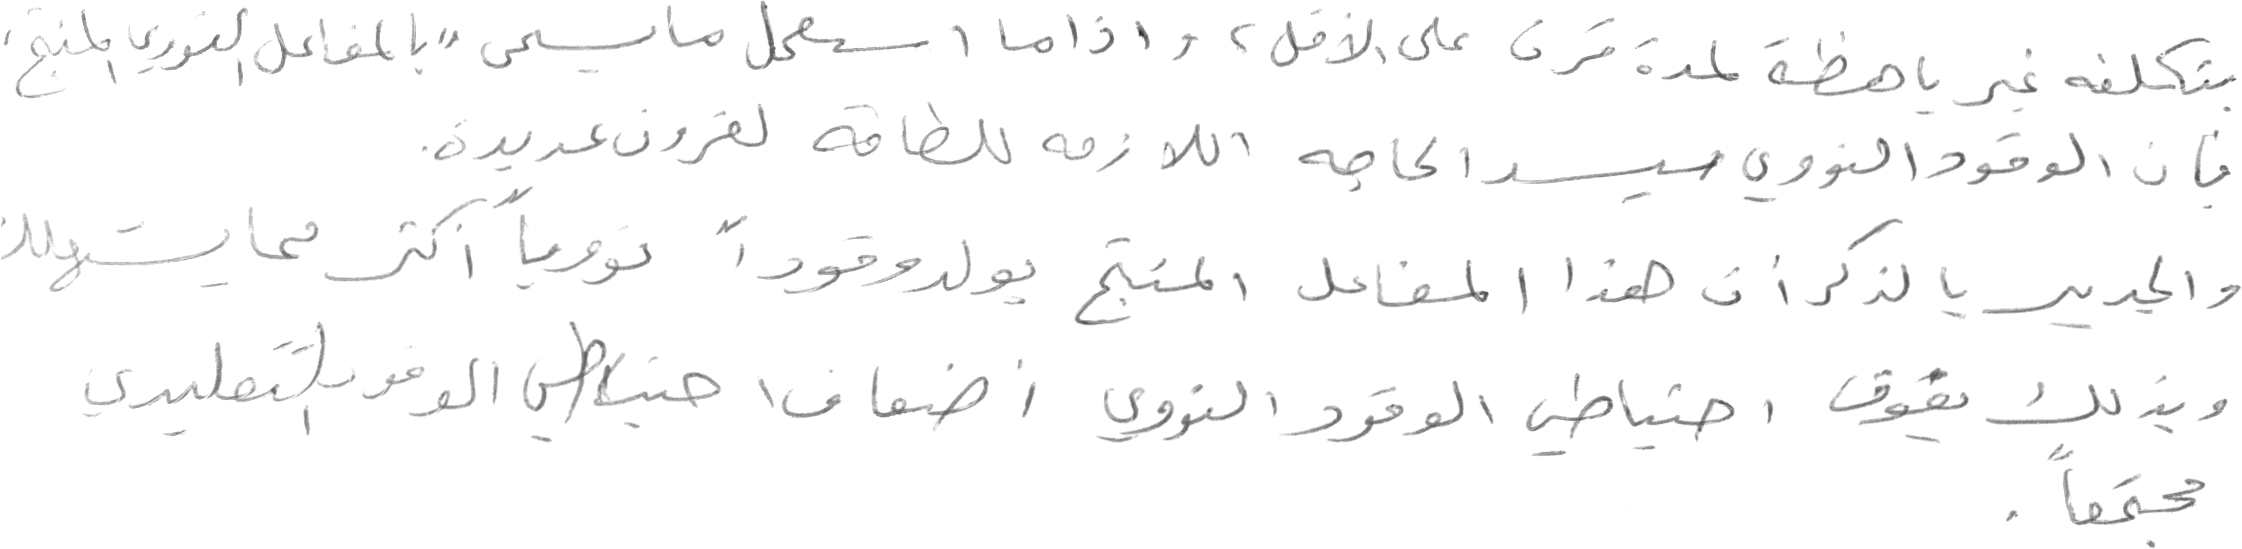 بتكلفه غير باهظة لمدة قرن على الأقل، واذا ما استعمل ما يسمى "بالمفاعل النووي المنتج"
فان الوقود النووي سيسد الحاجه اللازمه للطاقه لقرون عديدة.
والجدير بالذكر أن هذا المفاعل المنتج يولد وقوداً نووياً أكثر مما يستهلك
وبذلك يفوق احتياطي الوقود النووي أضعاف احتياطي الوقود التقليدي
مجتمعاً.